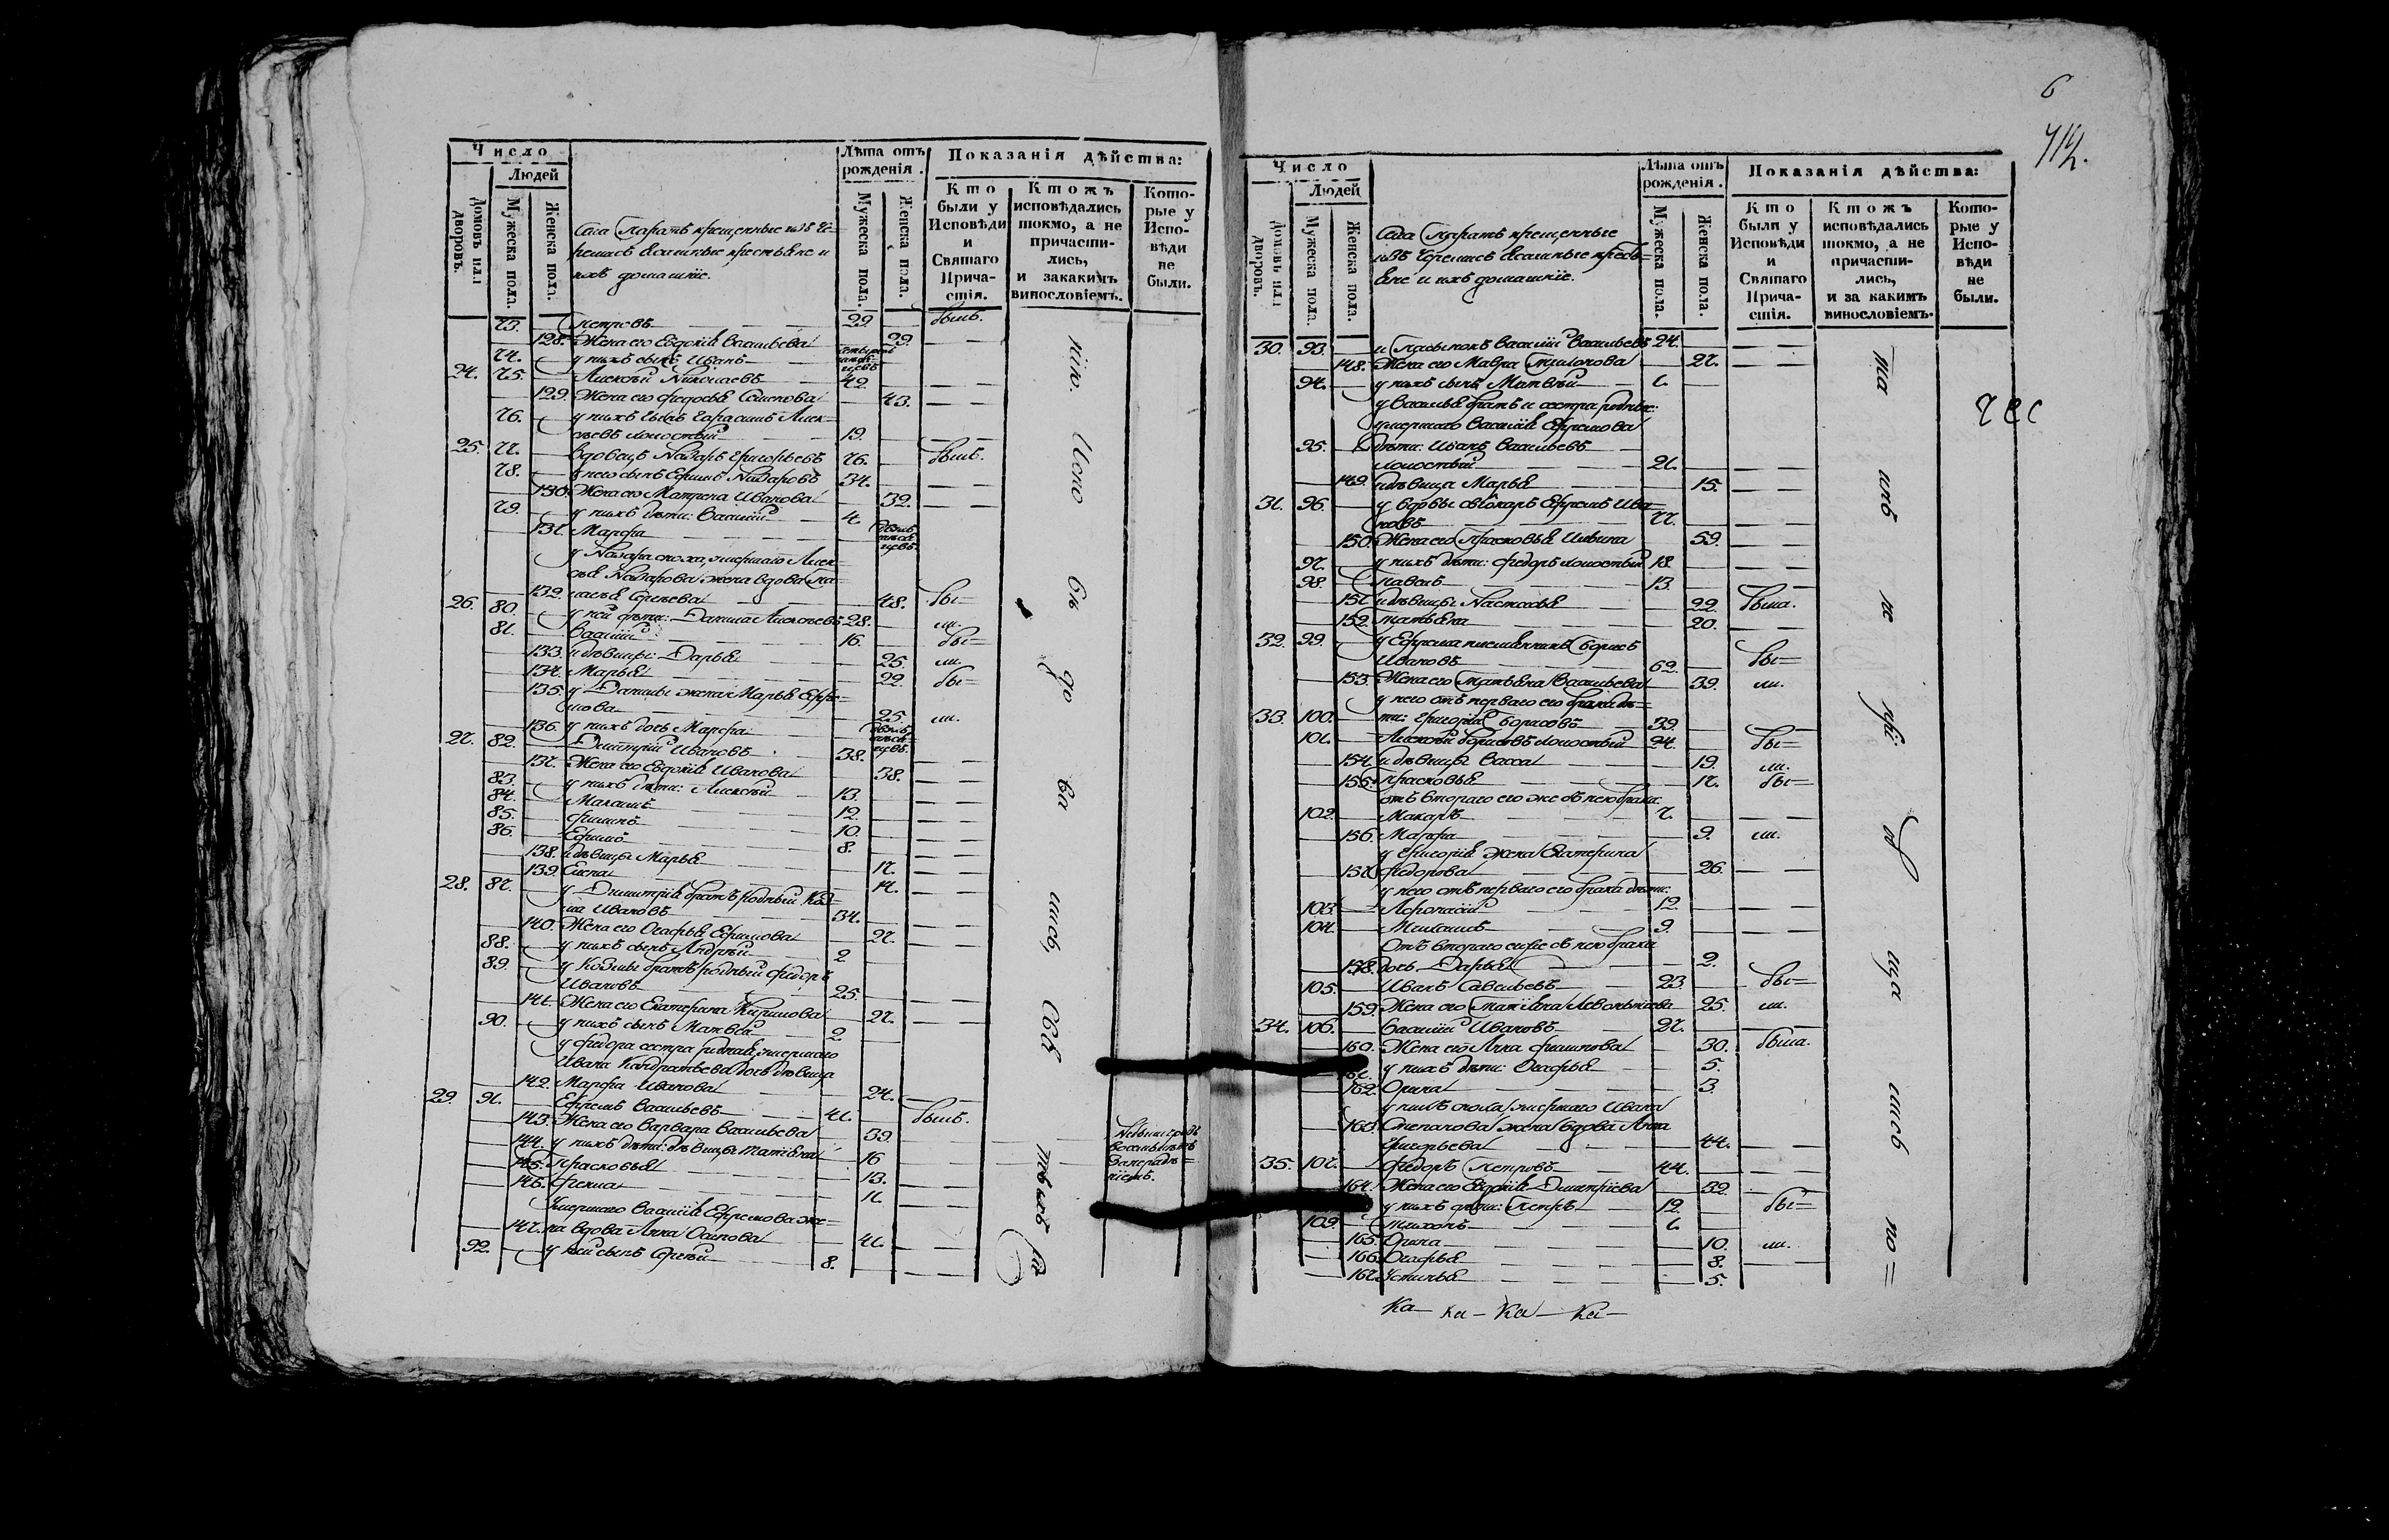 Число
Людей
Домовъ или дворовъ.
Мужеска пола.
Женска пола.
Села Параtъ крещенные изъ Че=
ремисъ ясашные крестьяне и
ихъ домашніе.
Лѣта отъ рожденія.
Мужеска пола.
Женска пола.
Показанія дѣйства:
Кто были у Исповѣди и Святаго Причастія.
Ктожъ исповѣдались токмо, а не причастились, и закакимъ винословіемъ.
Которые у Исповѣди не были.
73. Петровъ 29 былъ.
128. Жена его Евдокія Васильева 29.
74. у нихъ сынъ Иванъ
24. 75. Алексѣй Николаевъ 42
129. Жена его Федосья Семенова 43.
76. у нихъ сынъ Гарасимъ Алек=
сѣевъ холостый 19.
25. 77. Вдовецъ Назаръ Григорьевъ 76. былъ.
78. у него сынъ Ефимъ Назаровъ 34.
130. Жена его Матрена Иванова 32.
79. у нихъ дѣти: Василий 4
131. Марфа
у Назара сноха, умершаго Алек=
сѣя Назарова жена вдова Пе=
132. Сергѣева 48. бы=
26. 80. у ней дѣти: Данила Алексѣевъ 28. ли.
81. Василий 16. бы=
133. и дѣвицы: Дарья 25. ли.
134. Марья 22. бы=
135. у Данилы жена Марья Ефре=
мова 25. ли.
136. у нихъ дочь Марфа
27. 82. Дмитрий Ивановъ 38.
137. Жена его Евдокія Иванова 38.
83. у нихъ дѣти: Алексѣй 13.
84. Максимъ 12.
85. Филипъ 10.
86. Ефимъ 8.
138. и дѣвицы Марья 17.
139. Елена 14.
28. 87. у Димитрія братъ родный Коз=
ма Ивановъ 34.
140. Жена его Агафья Ефимова 27.
88. у нихъ сынъ Андрей 2
89. у Козмы братъ родный Федоръ
Ивановъ 25.
141. Жена его Екатерина Кирилова 27.
90. у нихъ сынъ Матвей 2
у Федора сестра родная, умершаго
Ивана Кондратьева дочь дѣвица
142. Марфа Иванова 24.
29. 91. Ефремъ Васильевъ 41. былъ.
143. Жена его Варвара Васильева 39.
144. у нихъ дѣти: дѣвицы Татьяна 16
145. Прасковья 13.
146. Фекла 11.
Умершаго Василия Ефремова же=
147. на вдова Анна Осипова 41.
92. у ней сынъ Сергѣй 8.
нію. Испо вѣ до ва лись, Свѣ
6
Число
Людей
Домовъ или дворовъ.
Мужеска пола.
Женска пола.
Села крещенные
изъ Черемисъ ясашные кресть=
яне и ихъ домашніе.
Лѣта отъ рожденія.
Мужеска пола.
Женска пола.
Показанія дѣйства:
Кто были у Исповѣди и Святаго Причастія.
Ктожъ исповѣдались токмо, а не причастились, и за какимъ винословіемъ.
Которые у Исповѣди не были.
30. 93. и Пасынокъ Василий Васильевъ 24.
148. Жена его Мавра 27.
94. у нихъ сынъ Матвѣй 1.
у Василья братъ и сестра родные:
умершаго Василия Ефремова
95. дѣти: Иванъ Васильевъ
холостый 21.
149. и дѣвица Марья 15.
31. 96. у вдовы свекоръ Ефремъ Ива=
новъ 77.
150. Жена его Прасковья Ильина 59.
97. у нихъ дѣти: Федоръ холостый 18.
98. Павелъ 13.
151. и дѣвицы Настасья 22. была.
152. Татьяна 20.
32. 99. у Ефрема племянникъ Борисъ
Ивановъ 62. бы=
153. Жена его Татьяна Васильева 39. ли.
у него отъ перваго его брака дѣ=
33. 100. ти: Григорій Борисовъ 39.
101. Алексѣй Борисовъ холостый 24. бы=
154. и дѣвицы Васса 19. ли.
155. Прасковья 17. бы=
отъ втораго его же съ нею брака
102. Макаръ 7.
156. Марфа 9. ли.
у Григорія жена Екатерина
157. Федорова 26.
у него отъ перваго его брака дѣти:
103. Афонасій 12.
104. Михаилъ 9.
Отъ втораго его же съ нею брака
158. дочь Дарья 2.
105. Иванъ Савельевъ 23. бы=
159. Жена его Татьяна 25. ли.
34. 106. Василий Ивановъ 27.
160. Жена его Анна Филипова 30. была.
161. у нихъ дѣти: Агафья 5.
162. Орина 3.
у нихъ сноха, умершаго Ивана
163. Степанова жена вдова Анна
Григорьева 44.
35. 107. Федоръ Петровъ 44.
164. Жена его Евдокія Дмитріева 32.
у нихъ дѣти: Петръ 12. бы=
109. Тихонъ 1.
165. Орина 10. ли.
166. Агафья 8.
167. Устинья 5.
Ка- ка- ка- ка-